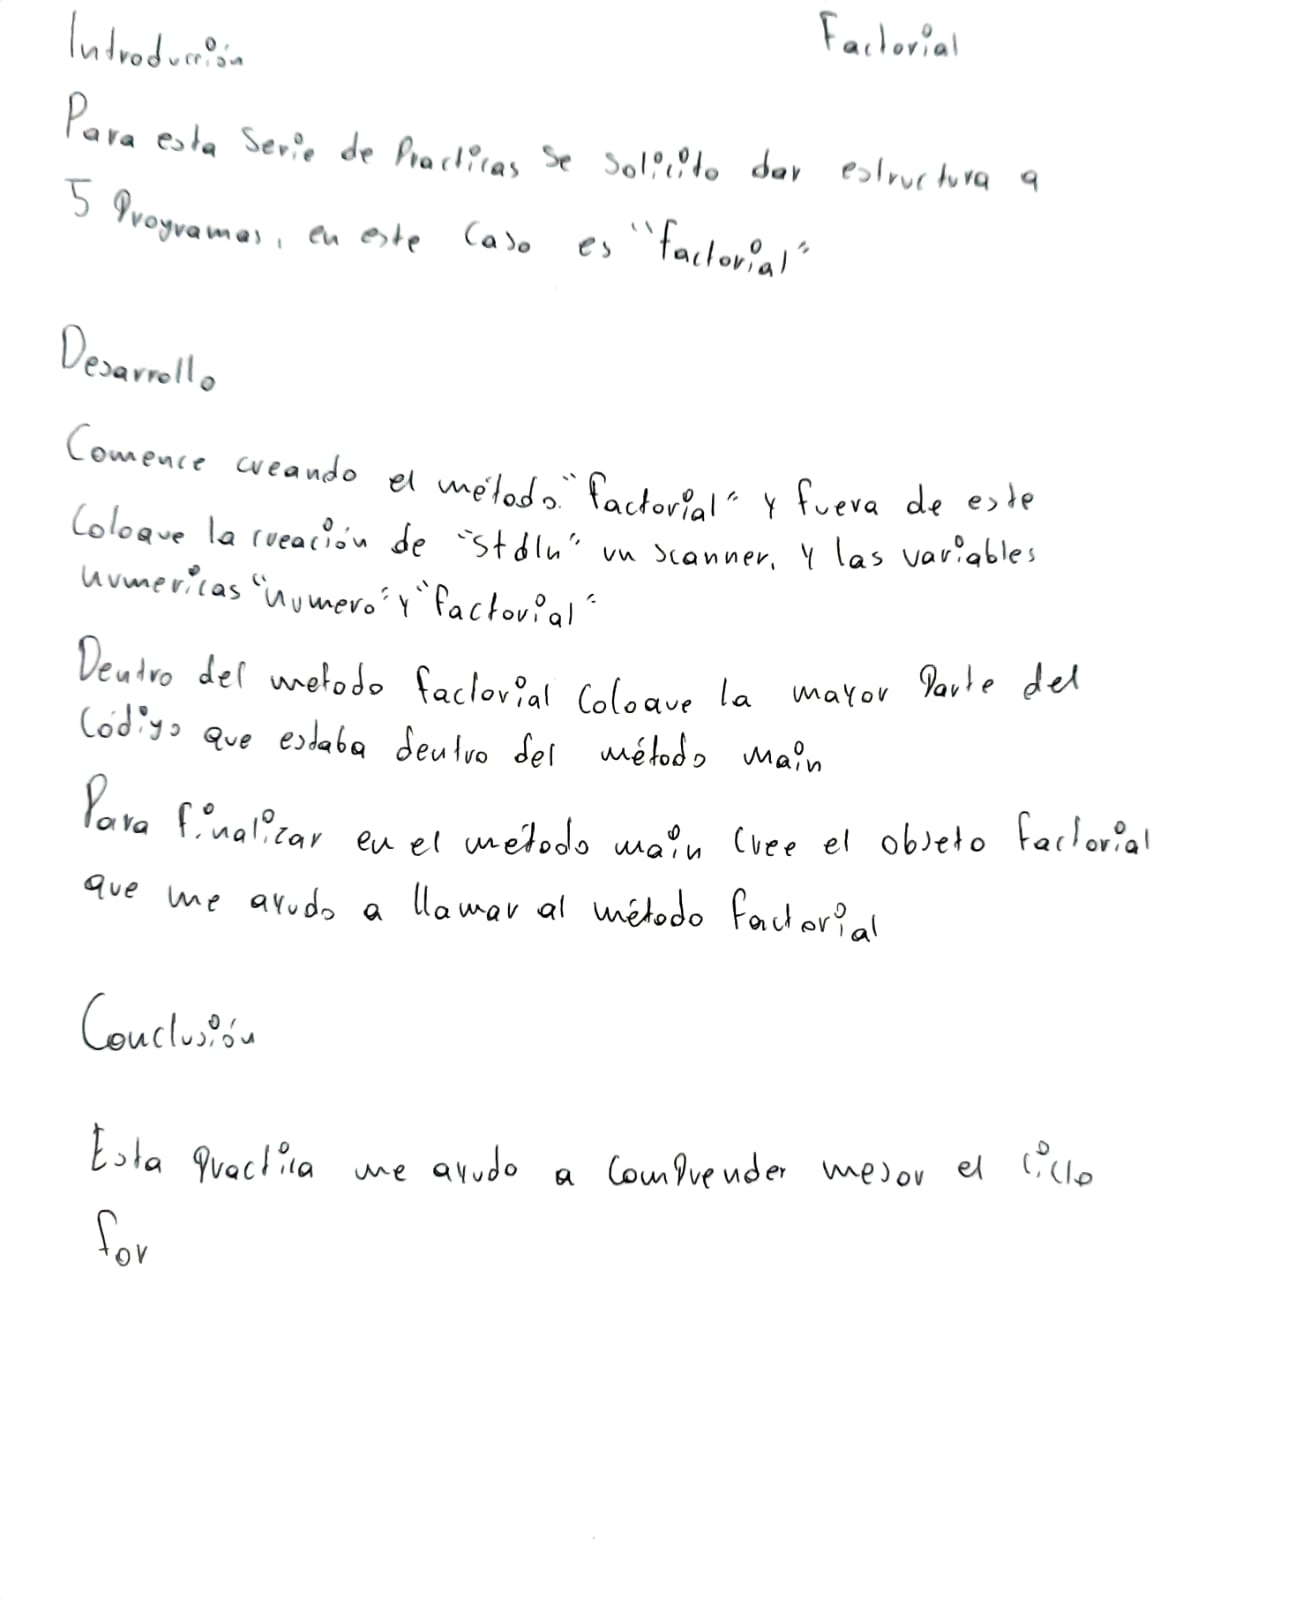 Introducción
Factorial
Para esta Serie de Practicas Se Solicito dar estructura a
5 Programas, en este Caso es "factorial"
Desarrollo
Comence creando el método "factorial" y fuera de este
Coloque la creación de "StdIn" un scanner, y las variables
numericas "numero" y "factorial"
Dentro del metodo factorial Coloque la mayor Parte del
Código que estaba dentro del método main
Para finalizar en el método main Cree el objeto factorial
que me ayudo a llamar al método factorial
Conclusión
Esta Practica me ayudo a Comprender mejor el Ciclo
for